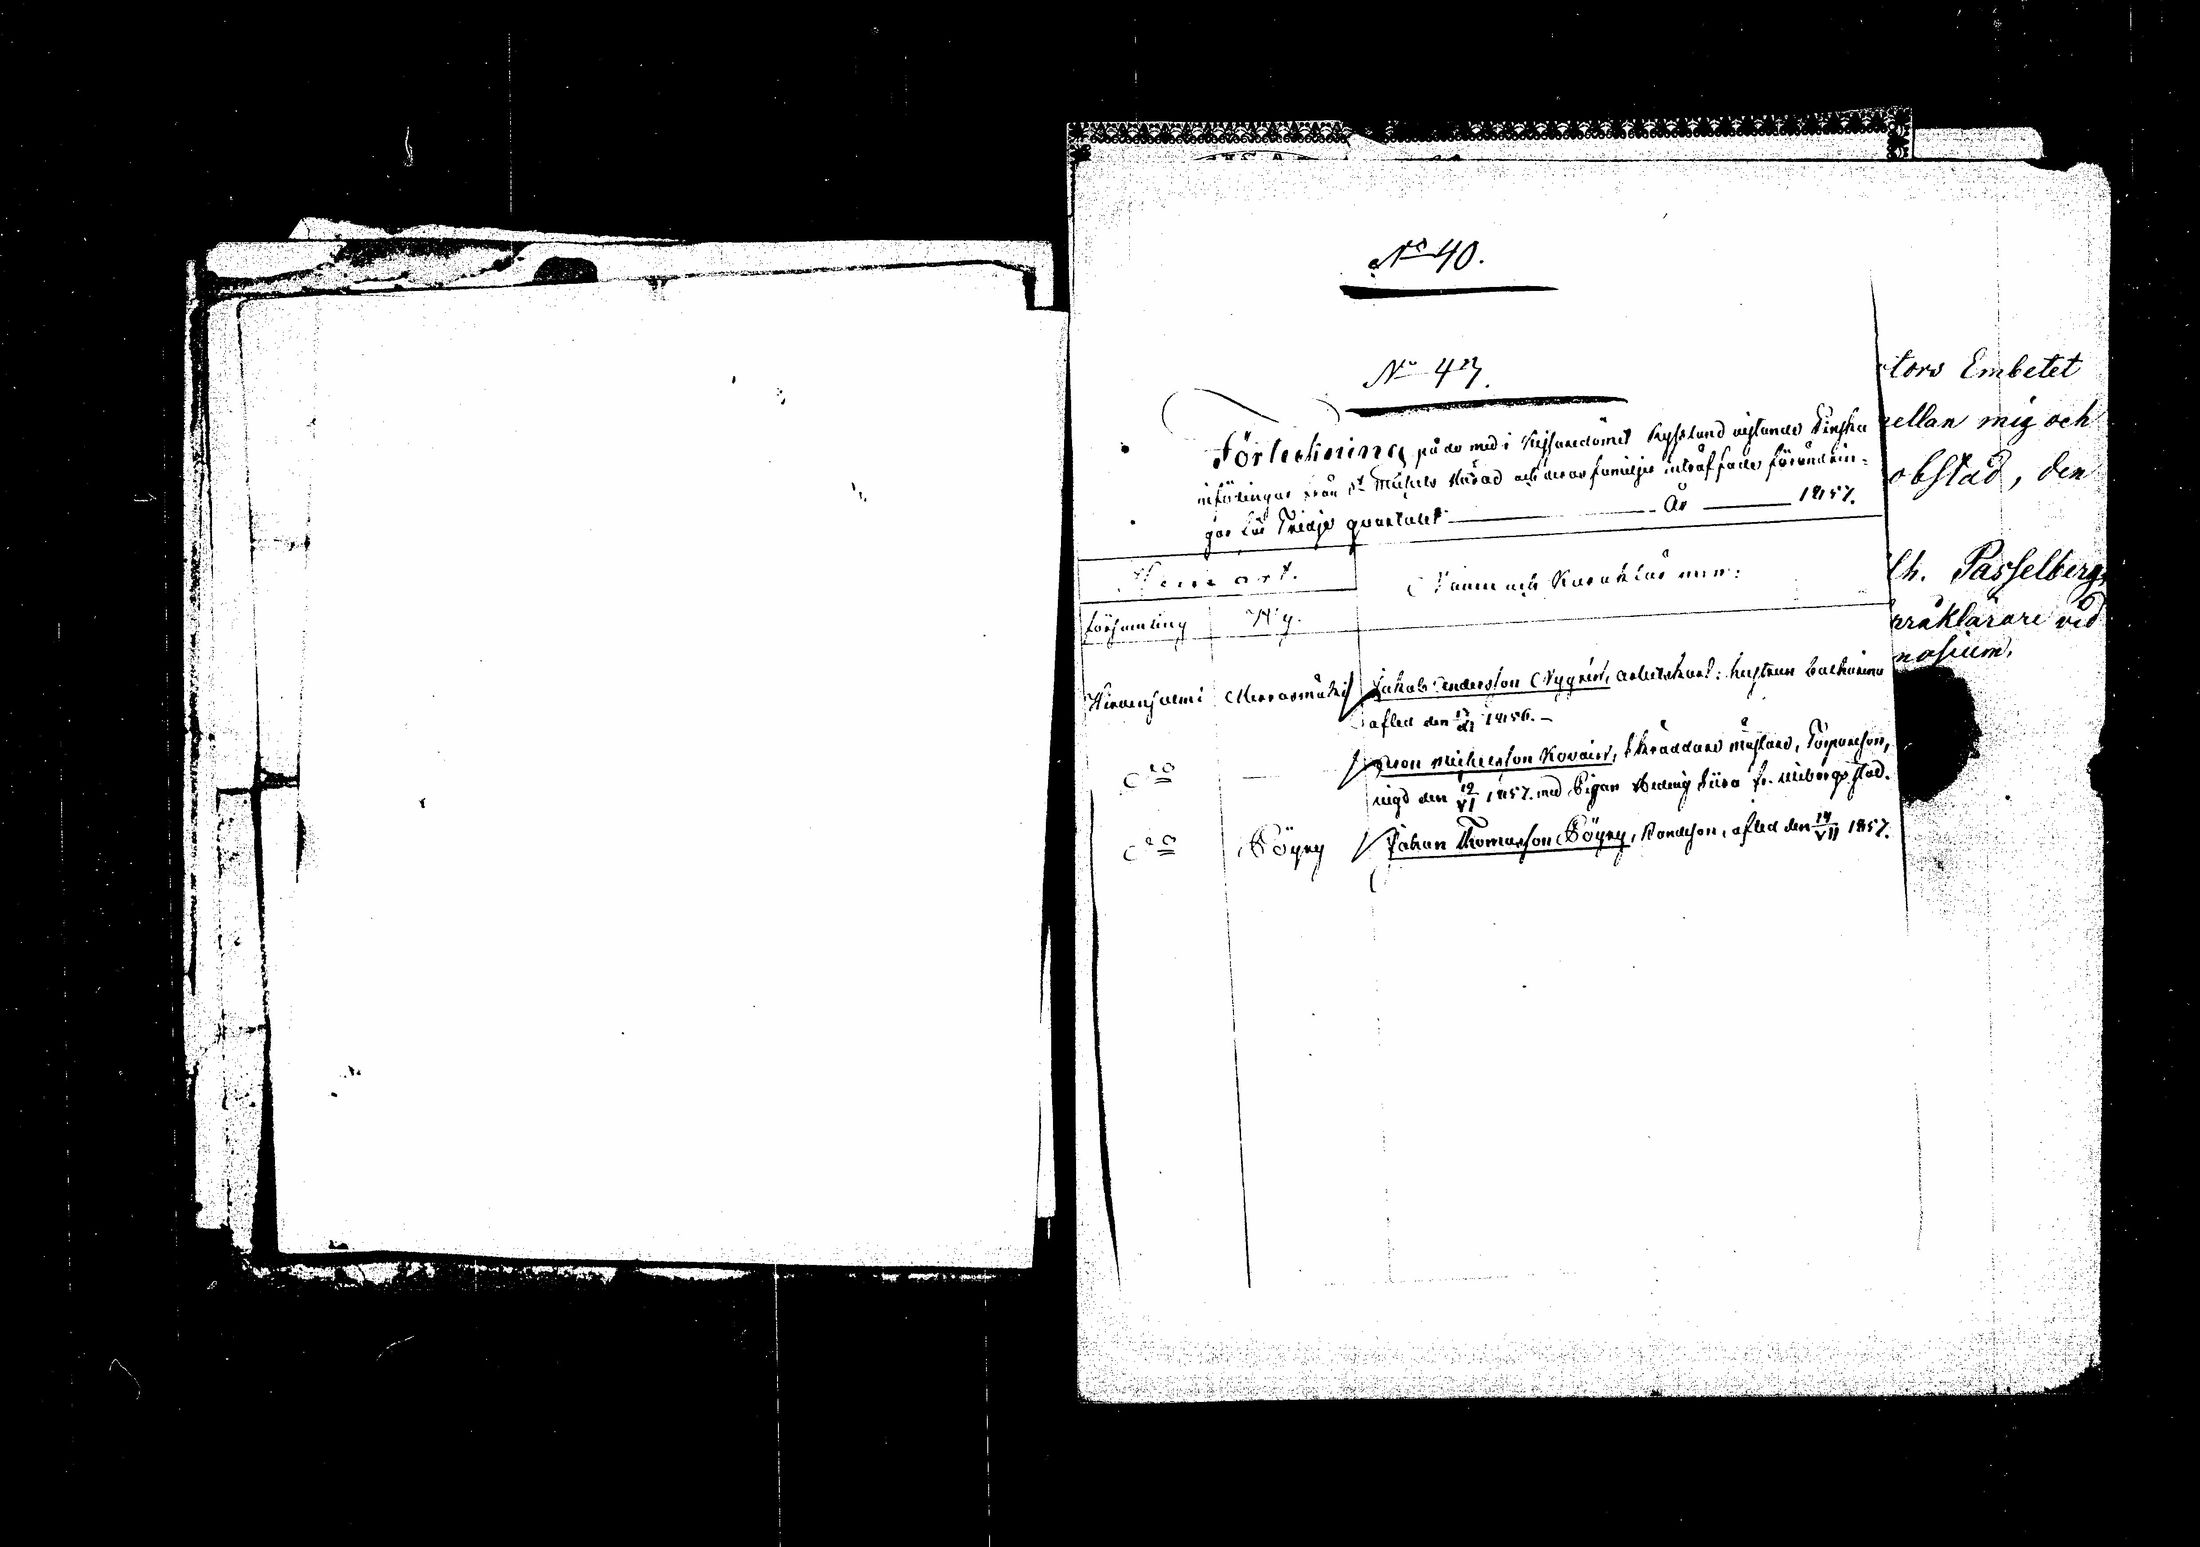 No 40.
No 47.
Förteckning på de med i Kejsaredömet Ryssland vistande Finska
införingar från St Michels Härad och deras familjer inträffade förändrin-
gar för Tredje quartalet År 1857.
Hemort.
Namn och Karaktär m.m:
Församling
By.
Hirvensalmi
Jakob Andersson Nygrén, arbetskarl: hustrun Catharina
afled den 1856.
do
Michelsson Kovain, Skräddare mästare,
vigd den 12/VI 1857. med Pigan Hedvig fr. Wiborgs stad.
do
Pöyry
Johan Thomasson Pöyry, Bondeson, afled den 14/VII 1857.
tors Embetet
ellan mig och
obstad, den
lh. Passelberg,
araklärare vid
nasium.